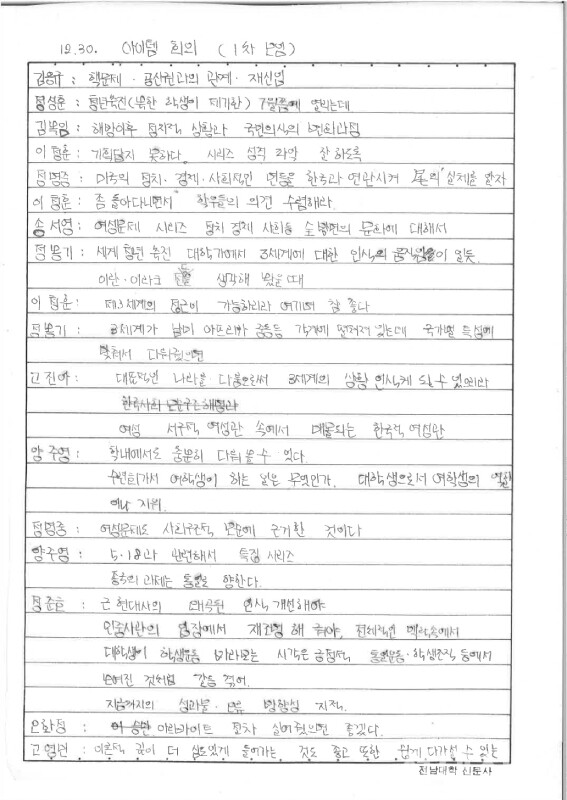 12.30. 아이템 회의 (1차 모임)
김용규 : 핵문제 · 공산권과의 관계 · 재신임
정성훈 : 청년축전(북한 학생이 제기한) 7월쯤에 열리는데
해방이후 정치적 상황과 국민의식의 변화과정
이정훈 : 기획답지 못하다. 시리즈 성격 파악 잘 하도록
정명중 : 미국의 정치·경제·사회적인 면등을 한국과 연관시켜 실체를 알자
이정훈 : 좀 돌아다니면서 학우들의 의견 수렴해라.
송서영 : 여성문제 시리즈 정치 경제 사회등 全방면의 문화에 대해서
정봉기 : 세계 청년 축전 대학가에서 3세계에 대한 인식의 움직임들이 일듯.
이란·이라크 생각해 봤을때
이정훈 : 제3세계의 접근이 가능하리라 여기며 참 좋다
정봉기 : 3세계가 남미 아프리카 중동등 각계에 퍼져 있는데 국가별 특성에
맞춰서 다뤄줬으면
고진아 : 대표적인 나라를 다룸으로써 3세계의 상황 인식케 되면
한국사회
여성 서구적 여성관 속에서 매몰되는 한국적 여성관
양주영 : 학내에서도 충분히 다뤄볼 수 있다.
여학생이 하는 일은 무엇인가. 대학생으로서 여학생의 역할
이나 지위.
정명중 : 여성문제도 사회구조적 모순에 근거한 것이다
양주영 : 5·18과 관련해서 특집 시리즈
민족의 과제는 통일을 향한다.
정준호 : 근현대사의 왜곡된 인식 개선해야
민중사관의 입장에서 재조명 해 줘야. 전체적인 맥락속에서
대학생이 학생운동 바라보는 시각은 긍정적, 통일운동·학생조직 등에서
보여진 것처럼 갈등 겪어.
지금까지의 성과물·오류 방향성 지적.
오화정 : 아르바이트 모차 실어줬으면 좋겠다.
고영련 : 이론적 깊이 더 심도있게 들어가는 것도 좋고 또한 쉽게 다가설 수 있는
전남대학 신문사